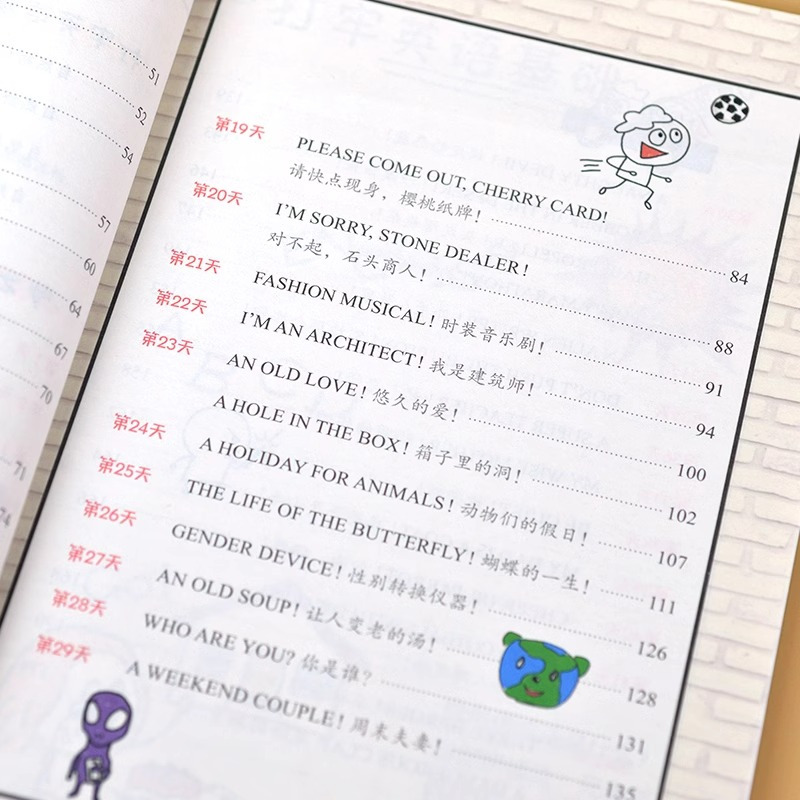 51
52
54
57
60
64
67
70
71
74
第19天 PLEASE COME OUT, CHERRY CARD!
请快点现身，樱桃纸牌！ 84
第20天 I'M SORRY, STONE DEALER!
对不起，石头商人！ 88
第21天 FASHION MUSICAL! 时装音乐剧！ 91
第22天 I'M AN ARCHITECT! 我是建筑师！ 94
第23天 AN OLD LOVE! 悠久的爱！ 100
A HOLE IN THE BOX! 箱子里的洞！ 102
第24天 A HOLIDAY FOR ANIMALS! 动物们的假日！ 107
第25天 THE LIFE OF THE BUTTERFLY! 蝴蝶的一生！ 111
第26天 GENDER DEVICE! 性别转换仪器！ 126
第27天 AN OLD SOUP! 让人变老的汤！ 128
第28天 WHO ARE YOU? 你是谁？ 131
第29天 A WEEKEND COUPLE! 周末夫妻！ 135